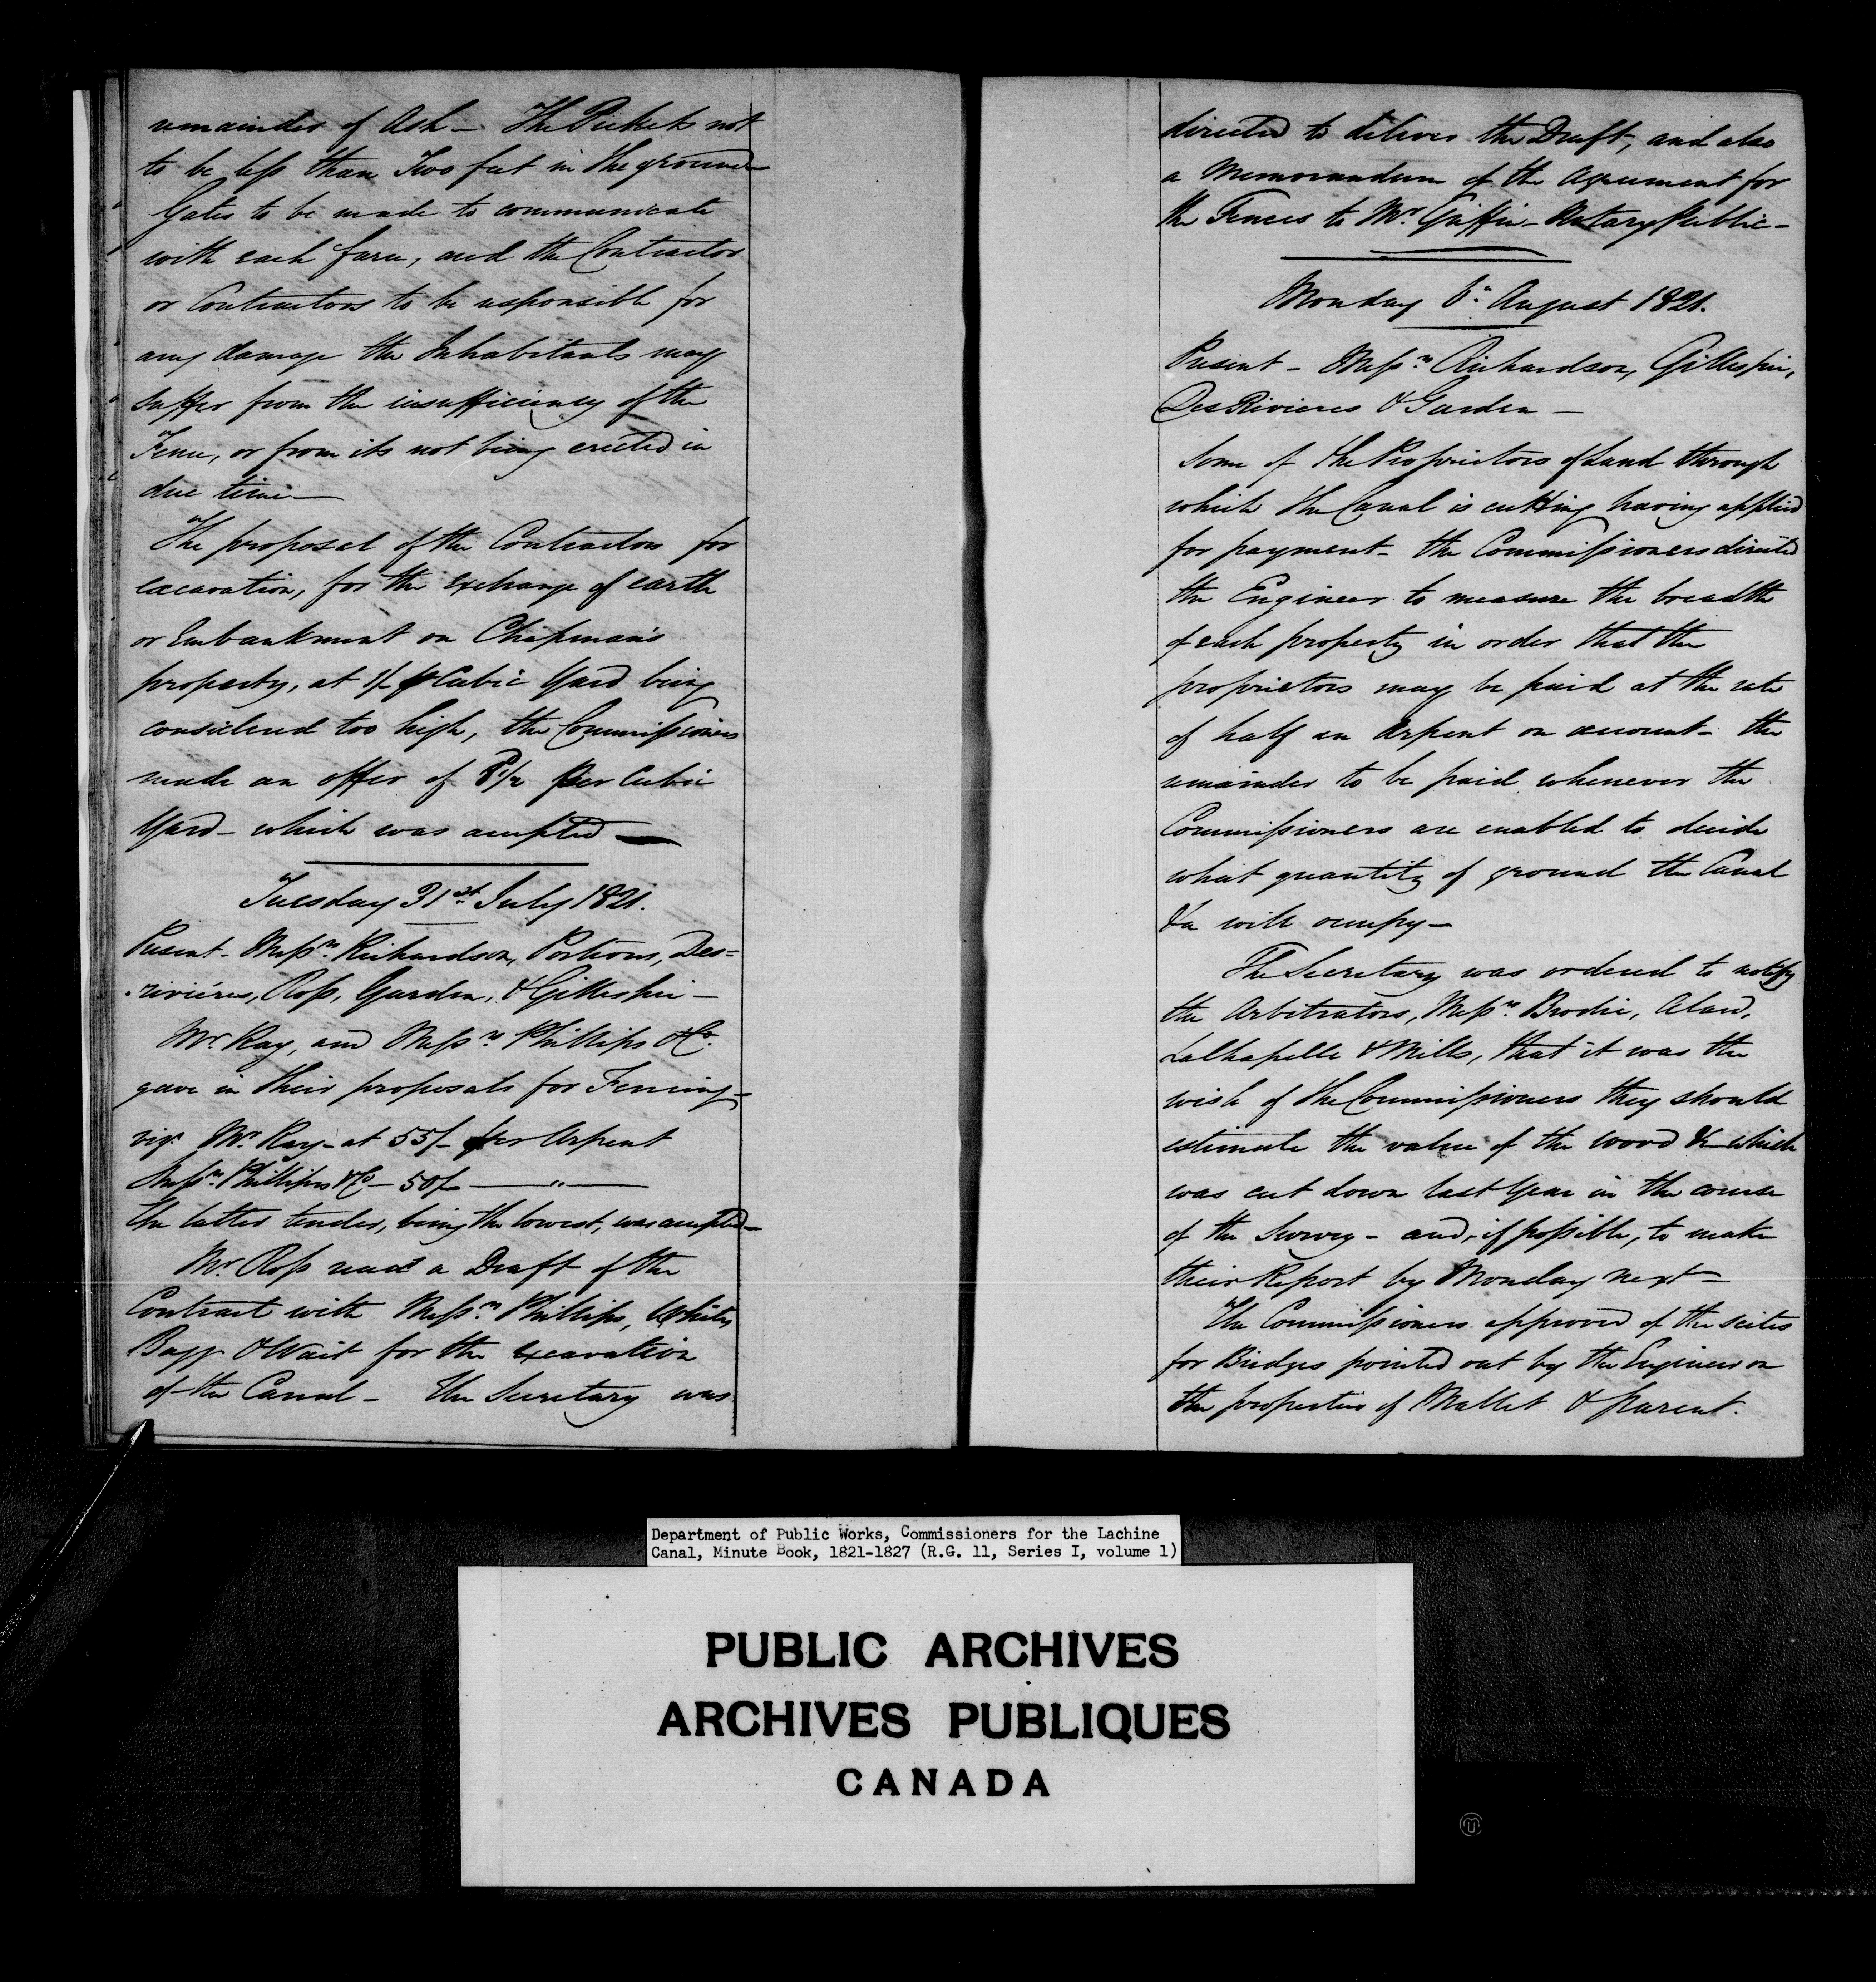 remainder of Ash – The Pickets not
to be less than Two feet in the ground –
Gates to be made to communicate
with each farm, and the Contractor
or Contractors to be responsible for
any damage the Inhabitants may
suffer from the insufficiency of the
Fence, or from its not being erected in
due time –
The proposal of the Contractors for
excavation, for the exchange of earth
or Embankment on Chapman's
property, at 1/- p Cubic Yard being
considered too high, the Commissioners
made an offer of per Cubic
Yard – which was accepted –
Tuesday 31st July 1821.
Present – Messrs Richardson, Porteous, Des=
rivières, Ross, Garden, & Gillespie –
Mr. Kay, and Messrs Phillips & Co.
gave in their proposals for Fencing –
viz: Mr. Kay – at 55/- per Arpent
Messrs Phillips & Co – 50/- — " —
the latter tender, being the lowest, was accepted –
Mr. Ross read a Draft of the
Contract with Messrs Phillips, White,
Bagg & Wait for the excavation
of the Canal – The Secretary was
directed to deliver the Draft, and also
a Memorandum of the Agreement for
the Fences to Mr. Griffin – Notary Public –
Monday 6th August 1821.
Present – Messrs Richardson, Gillespie,
DesRivieres & Garden –
Some of the Proprietors of Land through
which the Canal is cutting having applied
for payment – the Commissioners directed
the Engineer to measure the breadth
of each property in order that the
proprietors may be paid at the rate
of half an Arpent on account – the
remainder to be paid whenever the
Commissioners are enabled to decide
what quantity of ground the Canal
&a will occupy –
The Secretary was ordered to notify
the Arbitrators, Messrs Brodie,
LaChapelle & Mills, that it was the
wish of the Commissioners they should
estimate the value of the wood &c which
was cut down last Year in the course
of the Survey – and, if possible, to make
their Report by Monday next –
The Commissioners approved of the scites
for Bridges pointed out by the Engineer on
the properties of Mallet & Parent.
Department of Public Works, Commissioners for the Lachine
Canal, Minute Book, 1821-1827 (R.G. 11, Series I, volume 1)
PUBLIC ARCHIVES
ARCHIVES PUBLIQUES
CANADA